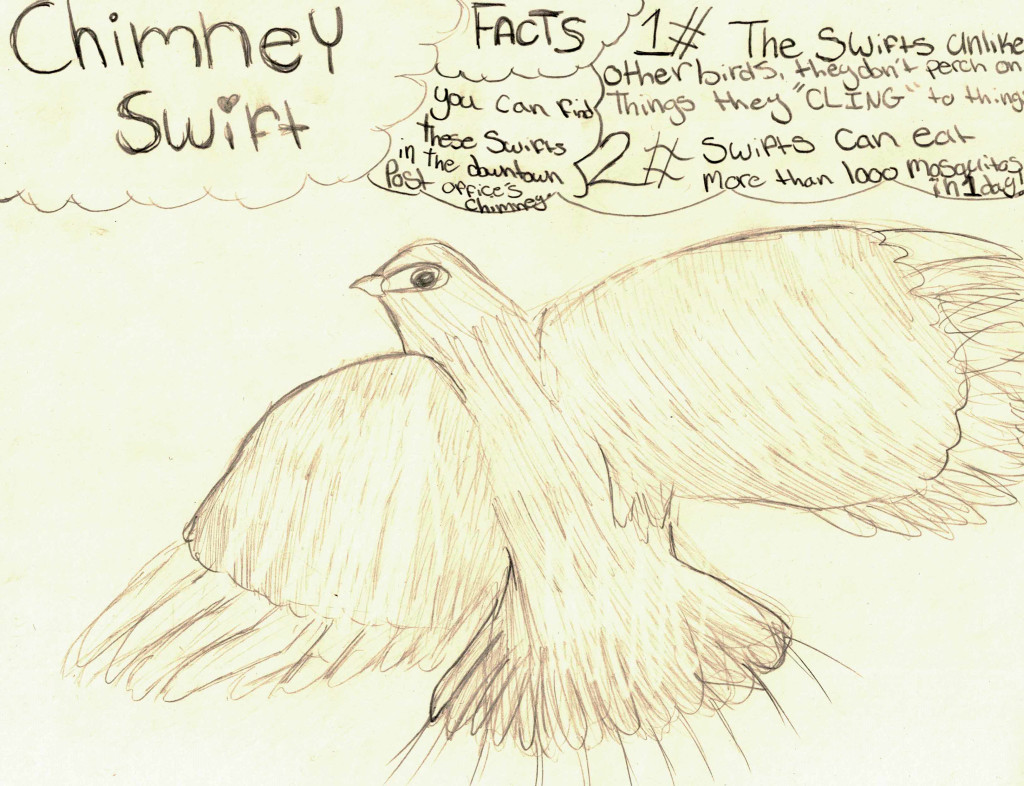 Chimney
Swift
FACTS
you can find
these Swifts
in the downtown
Post office's
chimney
1# The Swifts unlike
other birds, they don't perch on
Things they "CLING" to things
2# Swifts can eat
more than 1000 mosquitos
in 1 day!